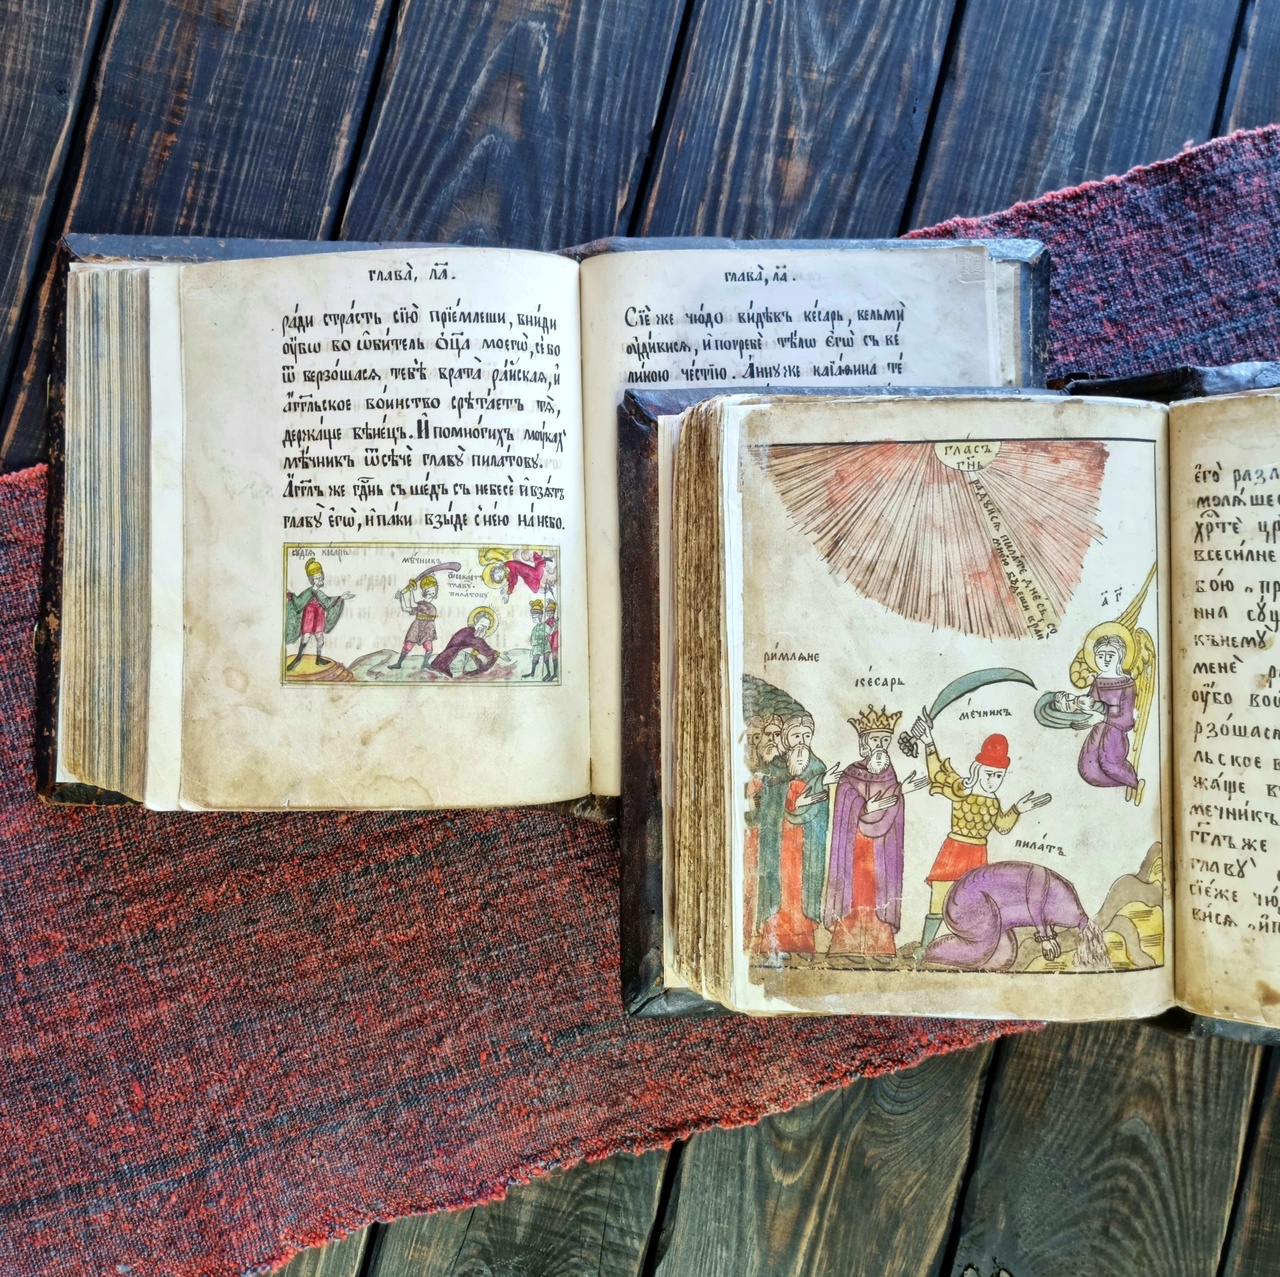 глава̀, л҃а.
ра́ди стра́сть сїю̀ прїе́млеши, вни́ди
ᲂу҆́бѡ во ѡ҆би́тель ѻ҆ц҃а̀ моегѡ̀, се́ бо
ѿверзо́шася тебѣ̀ врата̀ ра́йская, и҆
а҆́гг҃льское во́инство срѣта́етъ тя̀,
держа́ще вѣне́цъ. И҆ по мно́гихъ мꙋ́кахъ
мѣ́чникъ ѿсѣчѐ главꙋ̀ пила́товꙋ.
А҆́гг҃лъ же гдⷭ҇нь съше́дъ съ небесѐ и҆ взя́тъ
главꙋ̀ є҆гѡ̀, и҆ па́ки взы́де с не́ю на́ небо.
мѣ́чникъ
главꙋ
пилатовꙋ
глава̀, л҃а.
Сїе́ же чю́до ви́дѣвъ ке́сарь, вельмѝ
ᲂу҆диви́ся, и҆ погребѐ тѣ́ло є҆гѡ̀ съ ве
ли́кою че́стїю. А҆́ннꙋ же каїа́фина те́
гла́съ
гдⷭ҇нь
ра́дꙋйся пила́те дне́сь со
мно́ю бꙋ́деши в раѝ
а҃г
ри́мляне
ке́сарь
ме́чникъ
пила́тъ
є҆го̀ раз
моля́ше
хрⷭ҇тѐ цр
всеси́лне
бо́ю
нна сꙋ́щ
къ немꙋ̀
менѐ
ᲂу҆́бо во
рзо́шася
льское в
жа́ще в
мечникъ
гг҃лъ же
главꙋ̀
сїе́же чю́
ви́ся и҆п